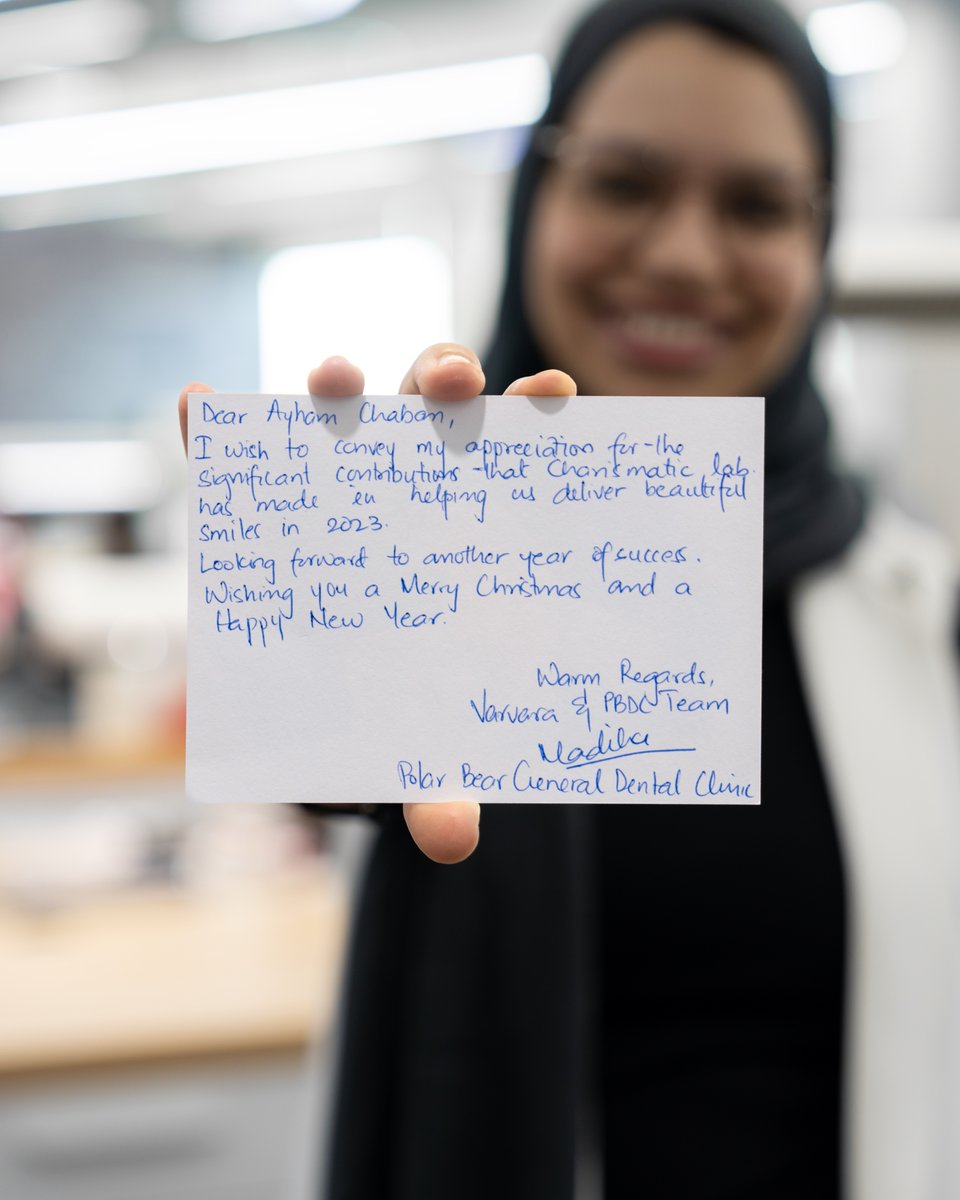 Dear Ayham Chaban,
I wish to convey my appreciation for the
significant contributions that Charismatic lab
has made in helping us deliver beautiful
smiles in 2023.
Looking forward to another year of success.
Wishing you a Merry Christmas and a
Happy New Year.
Warm Regards,
Varvara & PBDC Team
Polar Bear General Dental Clinic